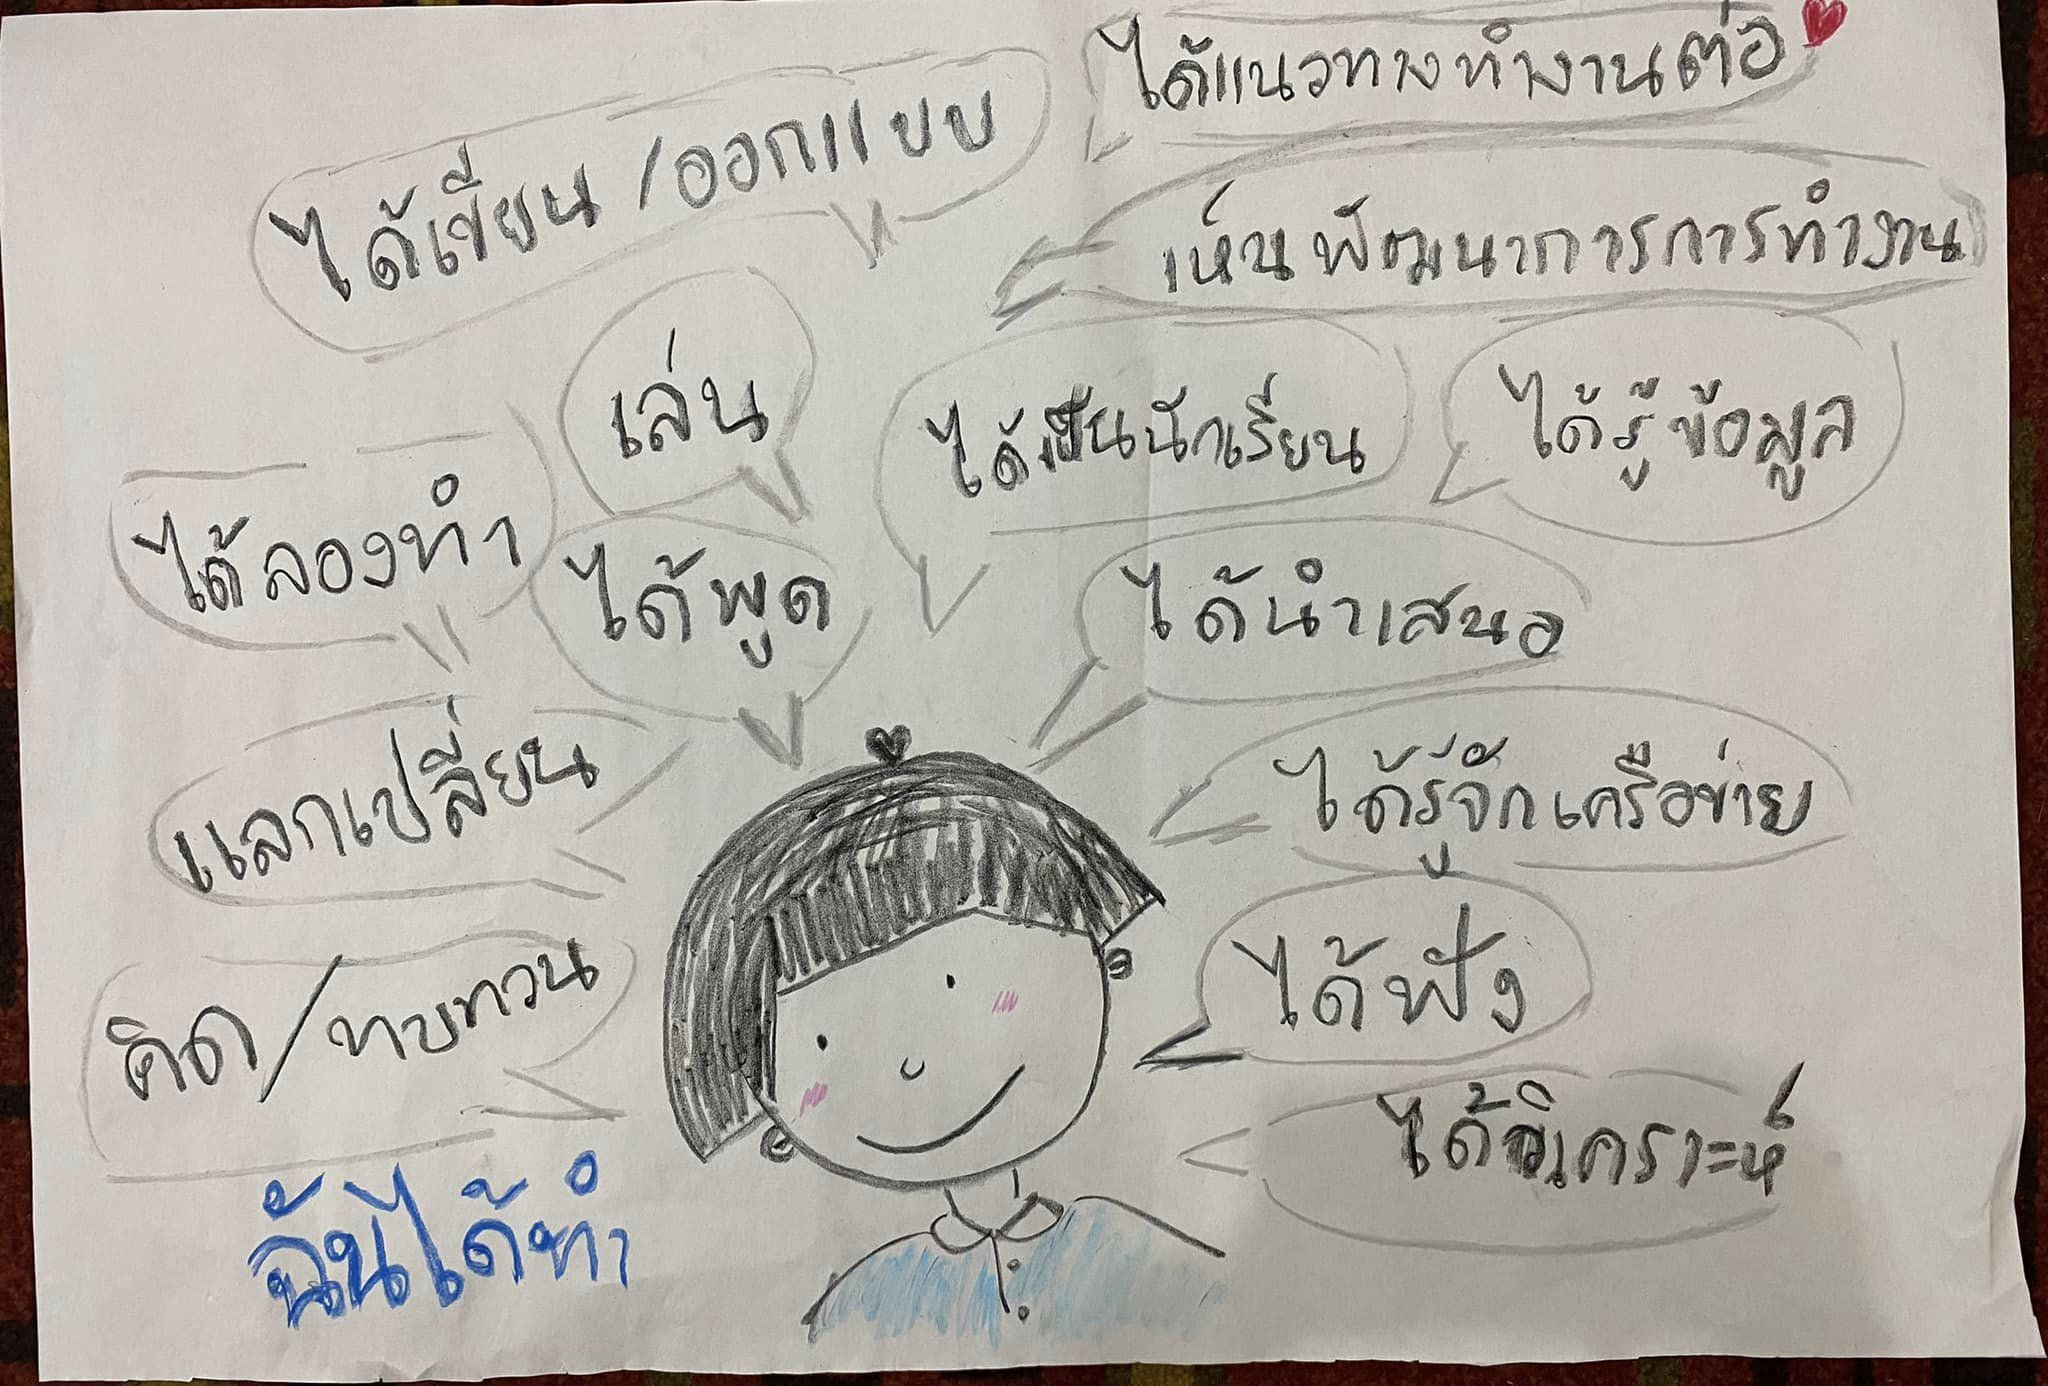 ได้แนวทางทำงานต่อ
ได้เขียน/ออกแบบ
เห็นพัฒนาการการทำงาน
เล่น
ได้เป็นนักเรียน
ได้รู้ข้อมูล
ได้ลองทำ
ได้พูด
ได้นำเสนอ
แลกเปลี่ยน
ได้รู้จักเครือข่าย
คิด/ทบทวน
ได้ฟัง
ได้วิเคราะห์
ฉันได้ทำ